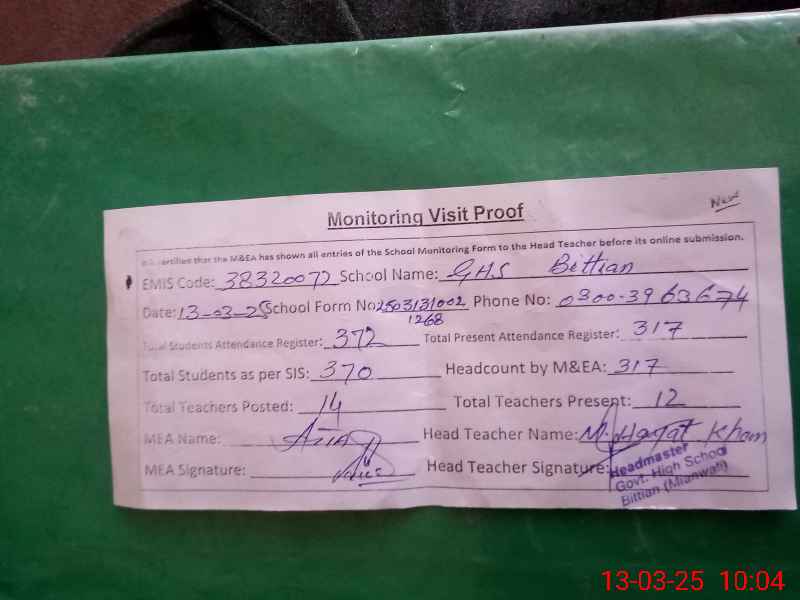 New
Monitoring Visit Proof
It is certified that the M&EA has shown all entries of the School Monitoring Form to the Head Teacher before its online submission.
EMIS Code: 38320072 School Name: GHS Bittian
Date: 13-03-25 School Form No 2503131002 Phone No: 0300-3963674
1268
Total Students Attendance Register: 372 Total Present Attendance Register: 317
Total Students as per SIS: 370 Headcount by M&EA: 317
Total Teachers Posted: 14 Total Teachers Present: 12
MEA Name: Head Teacher Name: M. Hayat Kham
MEA Signature: Head Teacher Signature:
Headmaster
Govt. High School
Bittian (Mianwali)
13-03-25 10:04